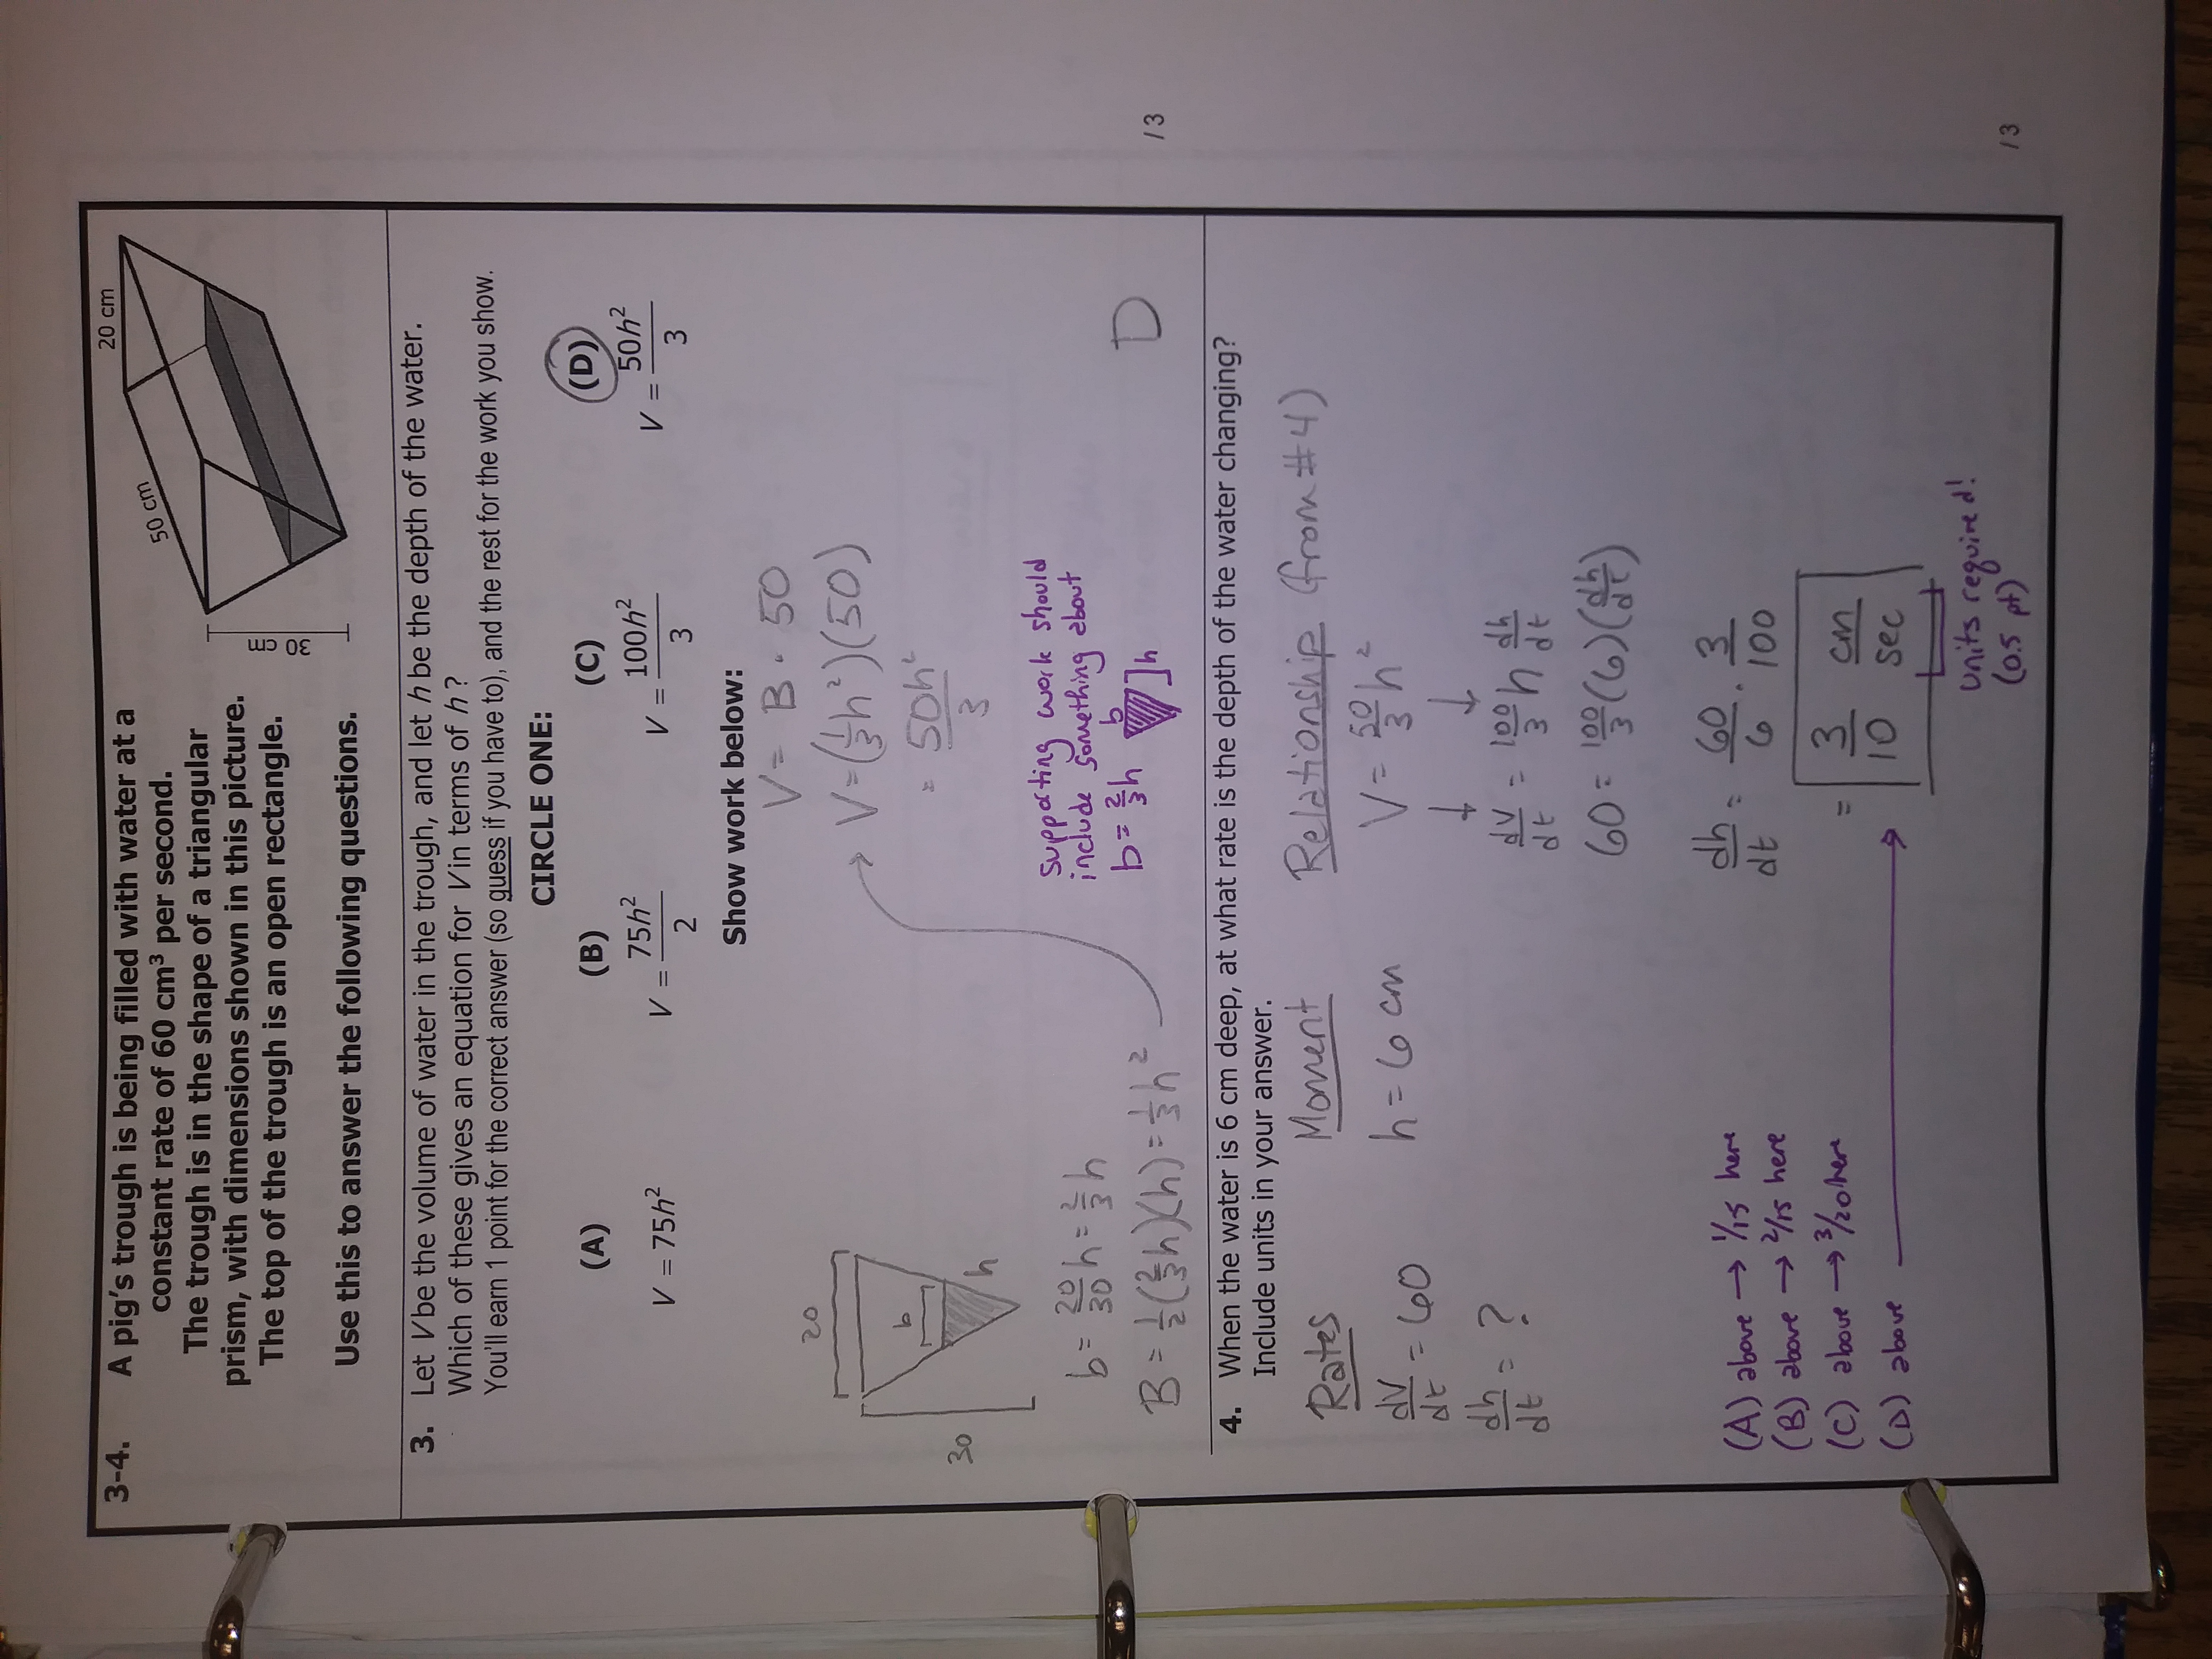 3-4. A pig's trough is being filled with water at a
constant rate of 60 cm³ per second.
The trough is in the shape of a triangular
prism, with dimensions shown in this picture.
The top of the trough is an open rectangle.
Use this to answer the following questions.
20 cm
50 cm
30 cm
3. Let V be the volume of water in the trough, and let h be the depth of the water.
Which of these gives an equation for V in terms of h ?
You'll earn 1 point for the correct answer (so guess if you have to), and the rest for the work you show.
CIRCLE ONE:
(A) (B) (C) (D)
V = 75h² V = 75h²/2 V = 100h²/3 V = 50h²/3
Show work below:
V = B · 50
V = (1/3 h²)(50)
= 50h²/3
20
b
30
h
b = 20/30 h = 2/3 h
B = 1/2 (2/3 h)(h) = 1/3 h²
supporting work should
include something about
b = 2/3 h b h
D
/3
4. When the water is 6 cm deep, at what rate is the depth of the water changing?
Include units in your answer.
Rates Moment Relationship (from #4)
dV/dt = 60
dh/dt = ?
h = 6 cm
V = 50/3 h²
↓ ↓
dV/dt = 100/3 h dh/dt
60 = 100/3 (6)(dh/dt)
dh/dt = 60/6 · 3/100
= 3/10 cm/sec
(A) above → 1/15 here
(B) above → 2/15 here
(C) above → 3/20 here
(D) above →
units required!
(0.5 pt)
/3